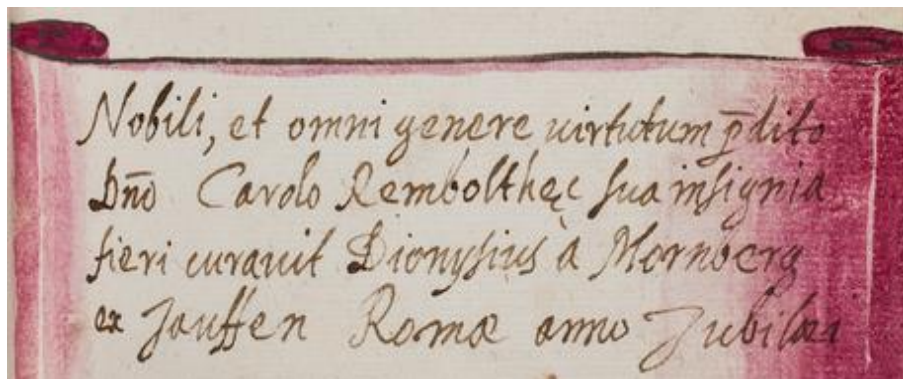 Nobili, et omni genere uirtutum p̄dito
Dn̄o Carolo Rembolt hęc sua insignia
fieri curauit Dionysius à Mornberg
ex Jauffen Romæ anno Jubilæi